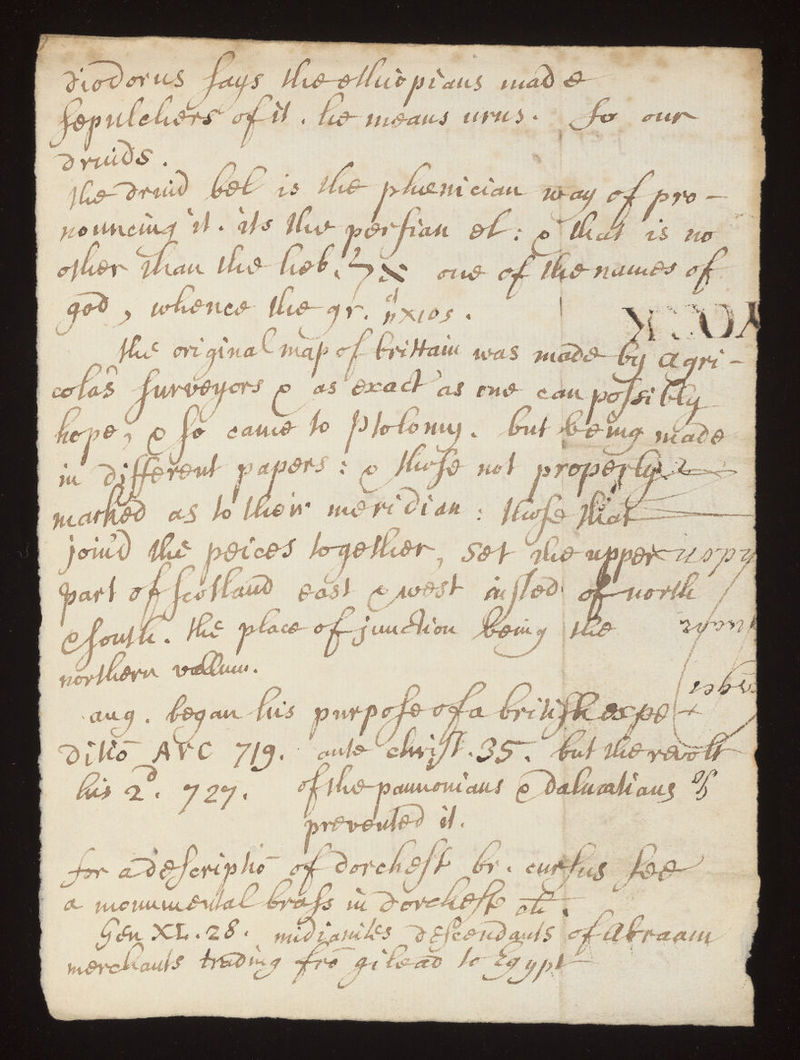 diodorus says the ethiopians made
sepulchers of it. he means urns. so our
druids.
the druid bel is the phœnician way of pro-
nouncing it. its the persian el: & that is no
other than the heb. אל one of the names of
god, whence the gr.
the original map of brittain was made by agri-
colas surveyors & as exact as one can possibly
hope, & so came to Ptolomy. but being made
in different papers: & those not properly
marked as to their meridian: those that
join'd the peices together, set the upper
part of scotland east & west insted of north
& south. the place of junction being the
northern vallum.
aug. began his purpose of a british expe
ditiō AVC 719. ante christ. 35. but the revolt
his 2d. 727. of the pannonians & dalmatians
prevented it.
for a descriptiō of dorchest br. cursus see
a monumental brass in dorchest ch.
Gen XL. 28. midianites descendants of Abraam
merchants trading frō gilead to Egypt